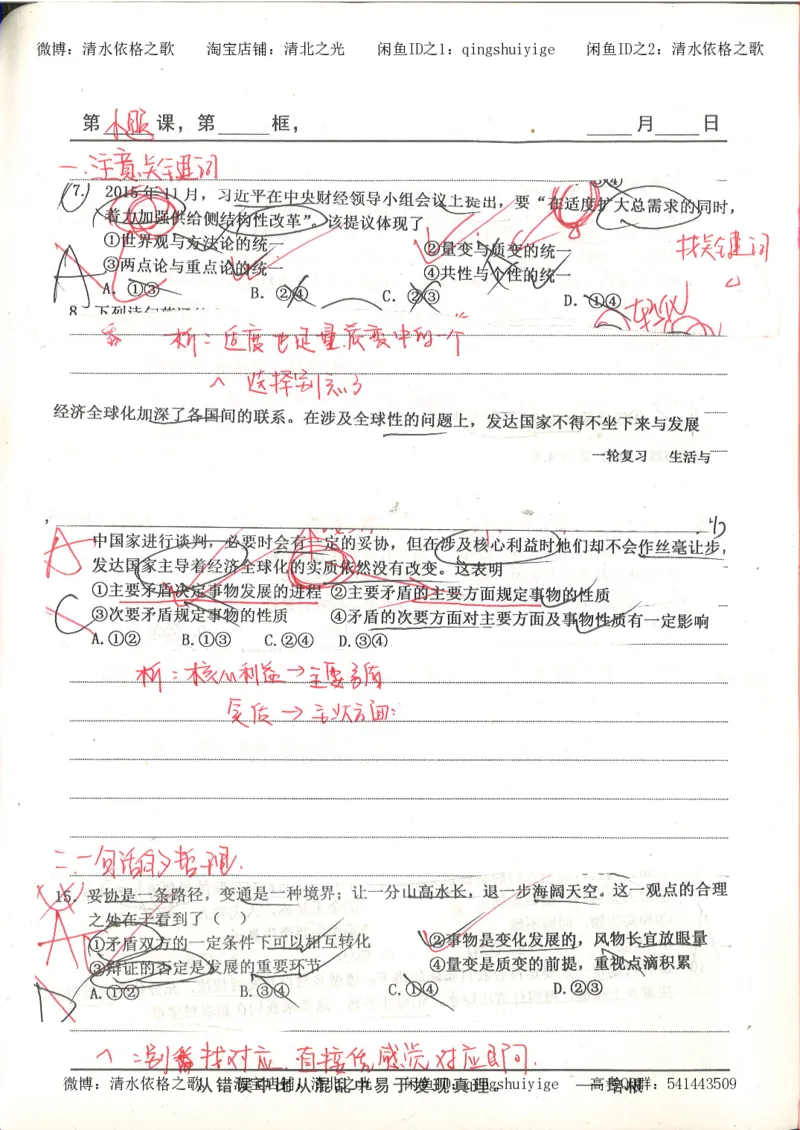 微博：清水依格之歌 淘宝店铺：清北之光 闲鱼ID之1：qingshuiyige 闲鱼ID之2：清水依格之歌
第 课，第 框， 月 日
一、注意关键词
7. 2015年11月，习近平在中央财经领导小组会议上提出，要“在适度扩大总需求的同时，
着力加强供给侧结构性改革”。该提议体现了
①世界观与方法论的统一 ②量变与质变的统一
找关键词
③两点论与重点论的统一 ④共性与个性的统一
A. ①③ B. ②④ C. ②③ D. ①④
析：适度也是量质变中的一个
经济全球化加深了各国间的联系。在涉及全球性的问题上，发达国家不得不坐下来与发展
一轮复习 生活与
中国家进行谈判，必要时会有一定的妥协，但在涉及核心利益时他们却不会作丝毫让步，
发达国家主导着经济全球化的实质依然没有改变。这表明
①主要矛盾决定事物发展的进程 ②主要矛盾的主要方面规定事物的性质
③次要矛盾规定事物的性质 ④矛盾的次要方面对主要方面及事物性质有一定影响
A.①② B.①③ C.②④ D.③④
析：核心利益→主要矛盾
二、一句话的哲理.
15. 妥协是一条路径，变通是一种境界；让一分山高水长，退一步海阔天空。这一观点的合理
之处在于看到了（ ）
①矛盾双方的一定条件下可以相互转化 ②事物是变化发展的，风物长宜放眼量
③辩证的否定是发展的重要环节 ④量变是质变的前提，重视点滴积累
A.①② B.③④ C.①④ D.②③
找对应，直接凭感觉对应即可.
从错误中比从混乱中易于发现真理。 ——培根
微博：清水依格之歌 淘宝店铺：清北之光 闲鱼ID：qingshuiyige 高考QQ群：541443509